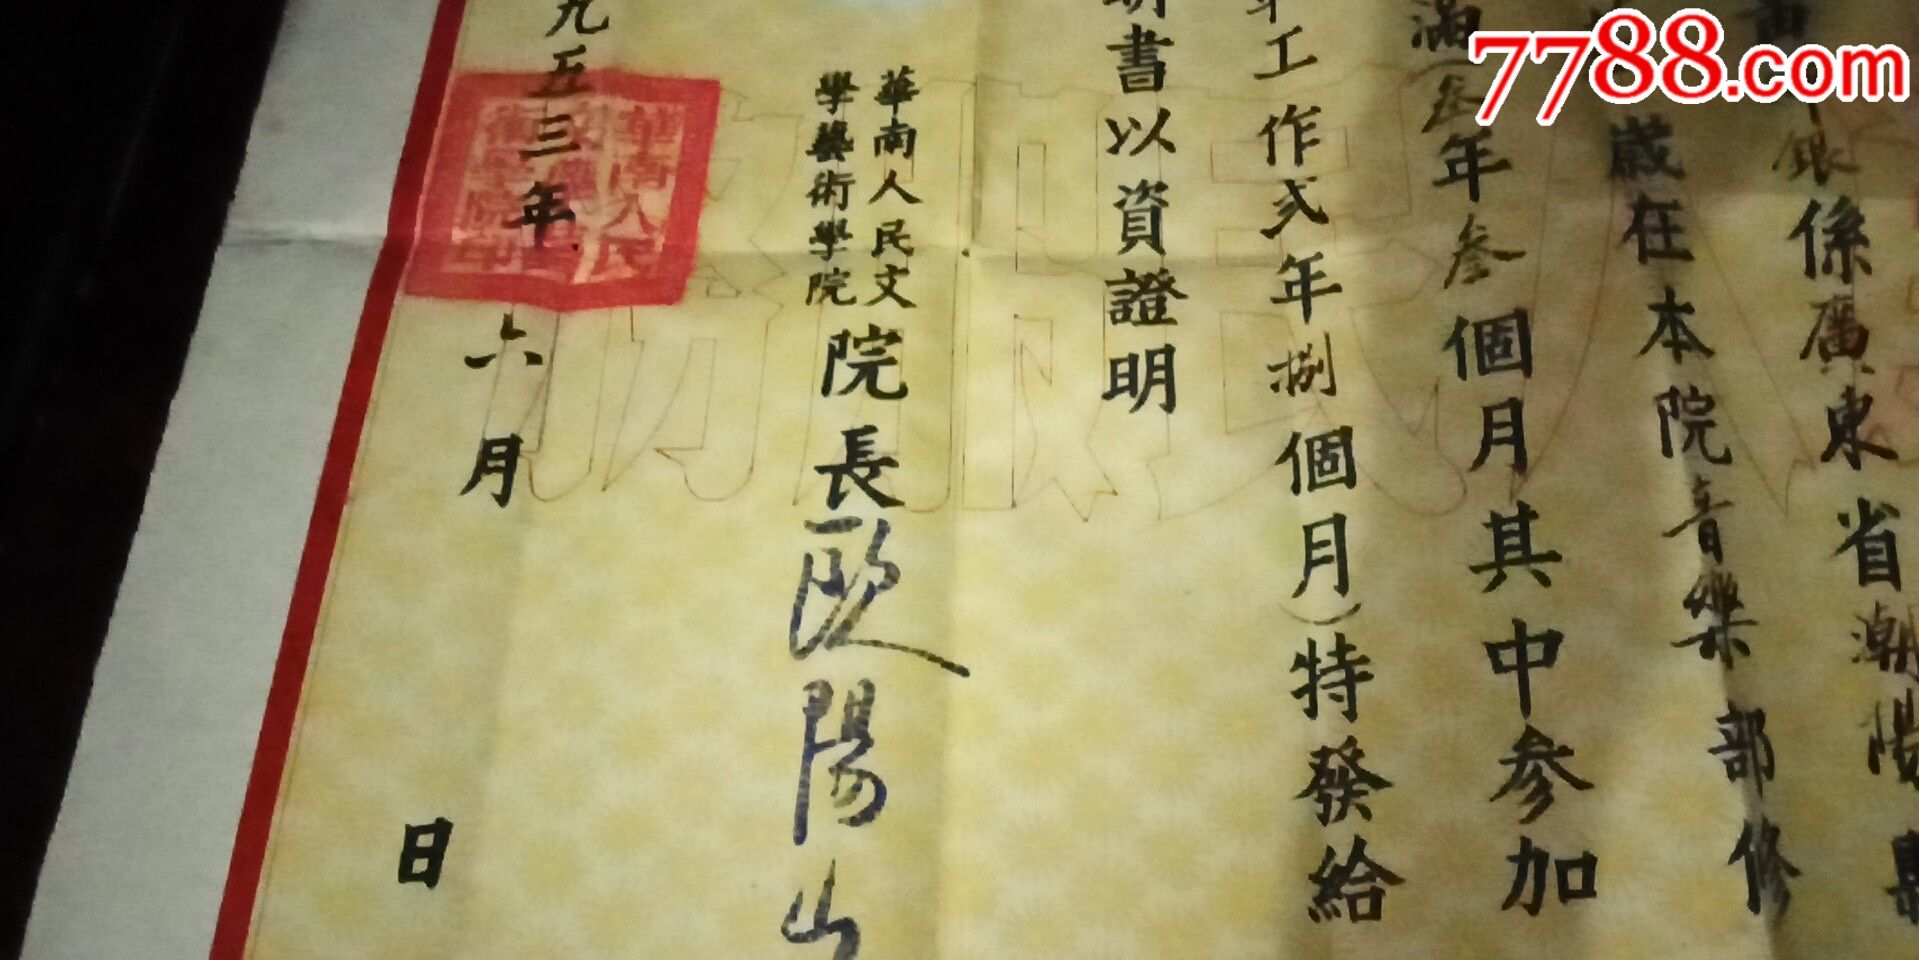 7788.com
銀係廣東省潮陽縣
歲在本院音樂部修
滿(叁年叁個月其中參加
工作弍年捌個月)特發給
書以資證明
華南人民文
學藝術學院
院長歐陽山
九五三年六月日